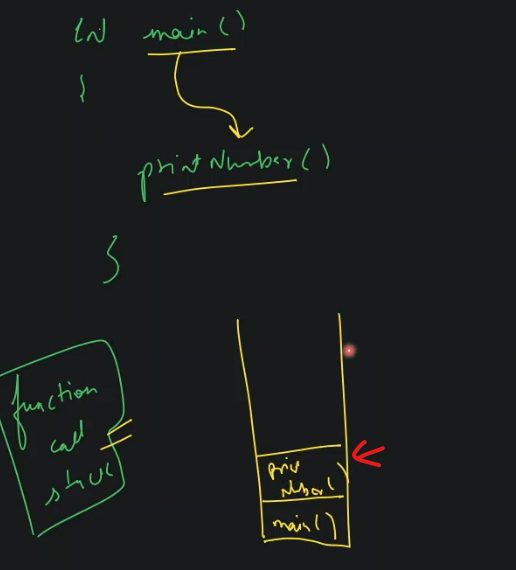 int main()
{
printNumber()
}
function
call
stack
print
Number()
main()